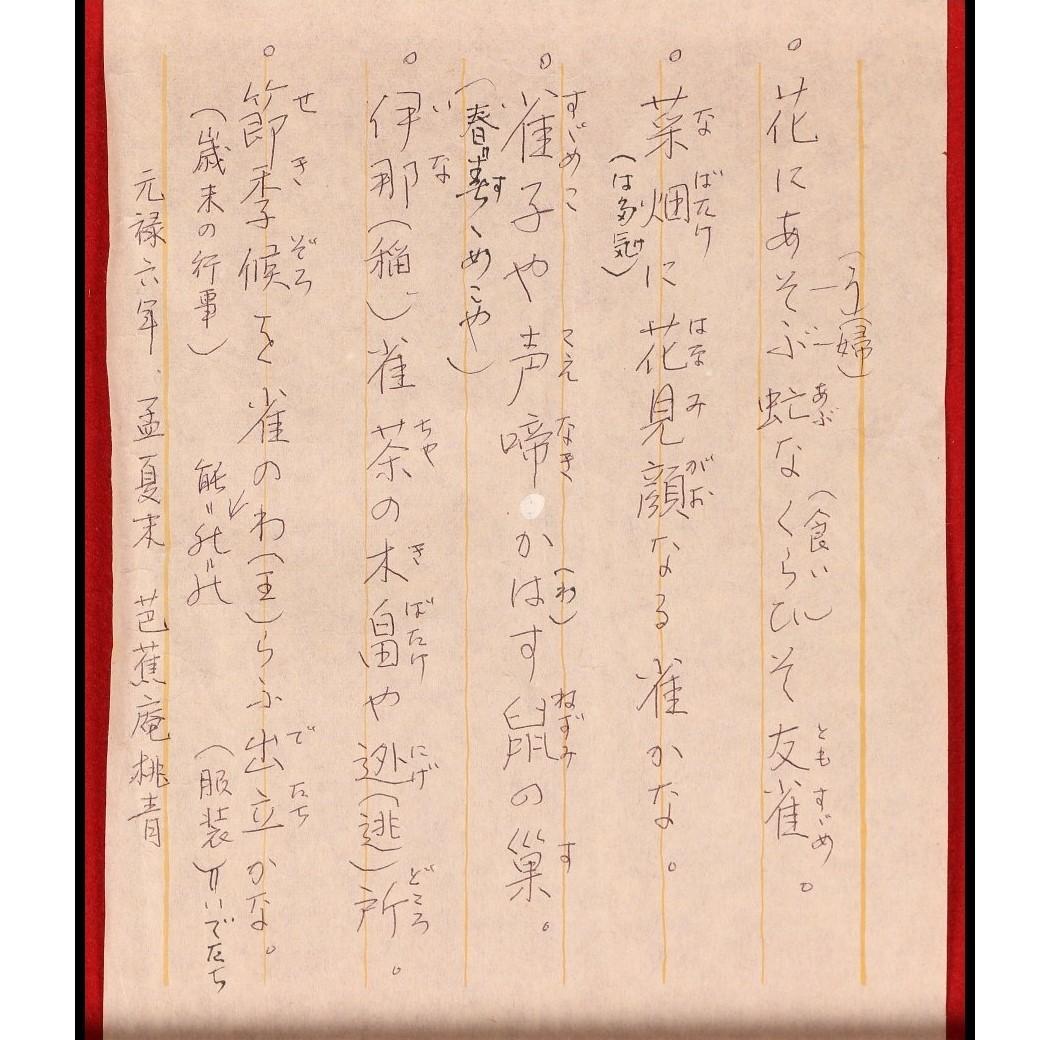 う(婦)
。花にあそぶ虻なくらひそ友雀。
あぶ
(食い)
ともすゞめ
。菜畑に花見顔なる雀かな。
なばたけ はなみがお
(は多気)
。雀子や声啼かはす鼠の巣。
すゞめこ こえなき (わ) ねずみ す
(春=春すゝめこや)
。伊那(稲)雀茶の木畠や迯(逃)所。
いな ちや き ばたけ にげ どころ
。節季候を雀のわ(王)らふ出立かな。
せきぞろ でたち
(歳末の行事)
能=
(服装)=いでたち
元禄六年、孟夏末 芭蕉庵桃青